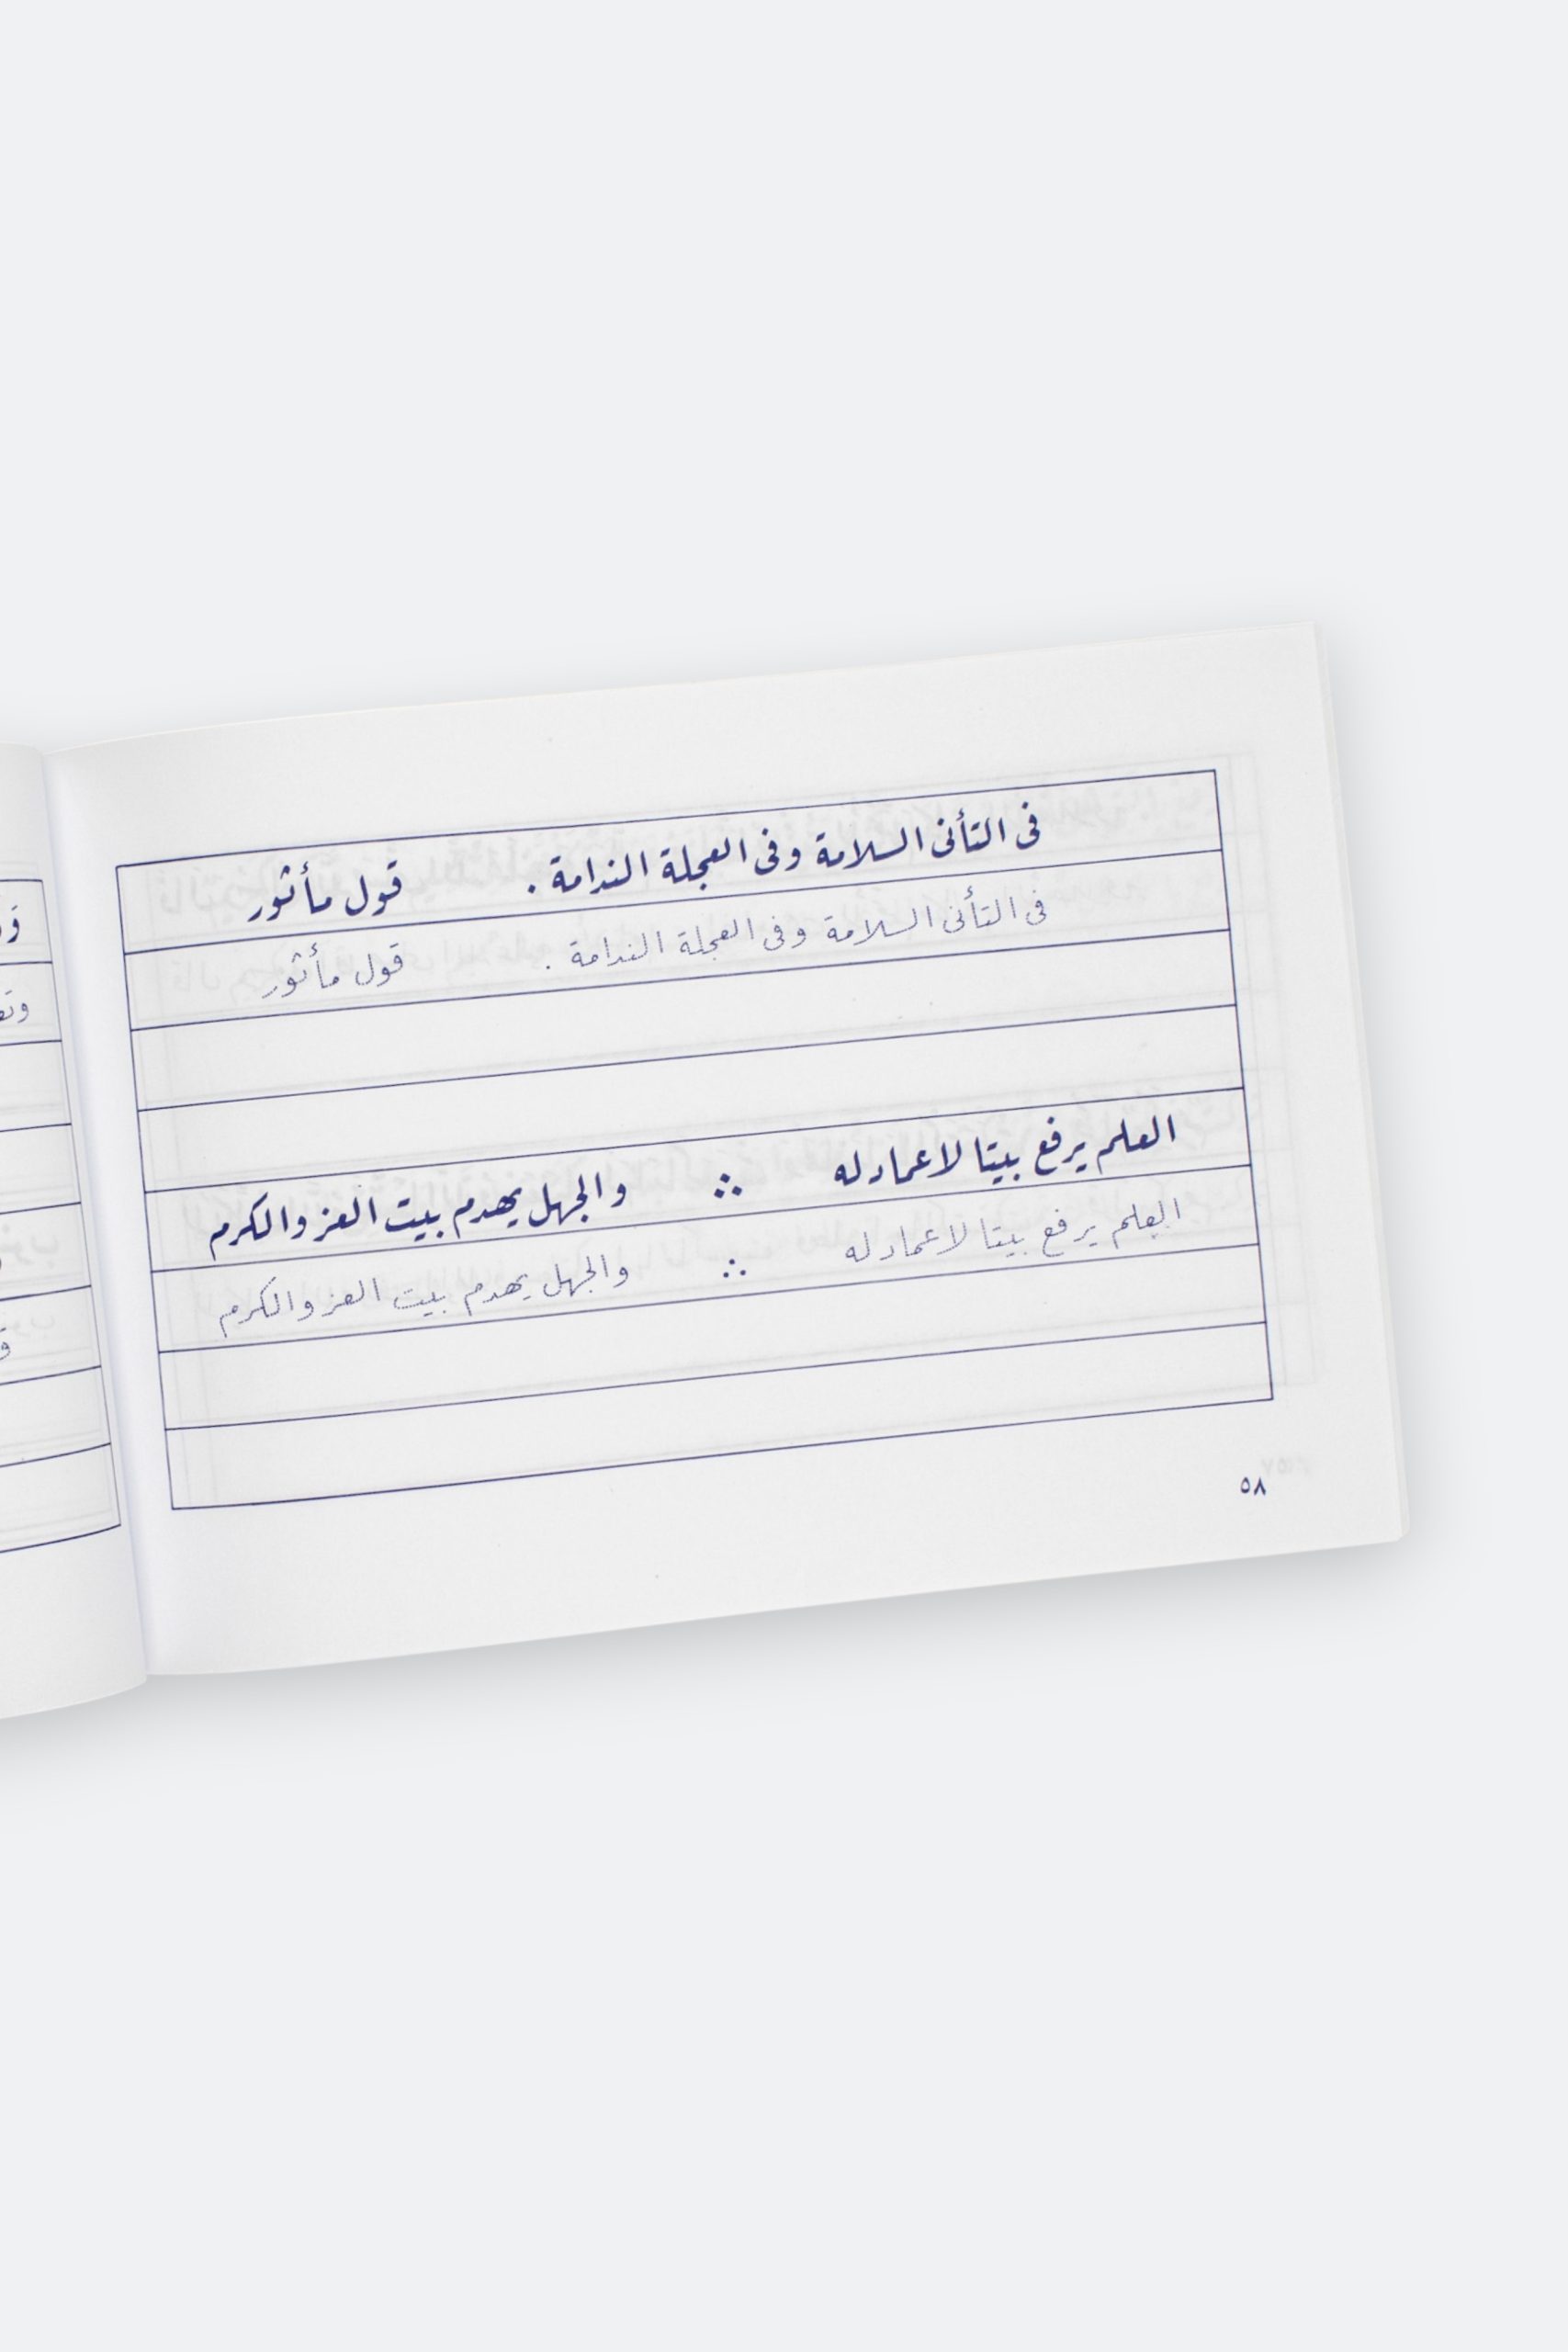 فى التأنى السلامة وفى العجلة الندامة . قول مأثور
فى التأنى السلامة وفى العجلة الندامة . قول مأثور
العلم يرفع بيتا لاعماد له ∴ والجهل يهدم بيت العز والكرم
العلم يرفع بيتا لاعماد له ∴ والجهل يهدم بيت العز والكرم
٥٨